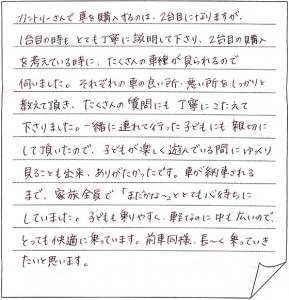 カントリーさんで車を購入するのは、2台目になりますが、
1台目の時もとても丁寧に説明して下さり、2台目の購入
を考えている時に、たくさんの車種が見られるので
伺いました。それぞれの車の良い所・悪い所をしっかりと
教えて頂き、たくさんの質問にも丁寧にこたえて
下さりました。一緒に連れて行った子どもにも親切に
して頂いたので、子どもが楽しく遊んでいる間にゆっくり
見ることも出来、ありがたかったです。車が納車される
まで、家族全員で「まだかな〜」ととても心待ちに
していました。子どもも乗りやすく、軽なのに中も広いので、
とっても快適に乗っています。前車同様、長〜く乗っていき
たいと思います。